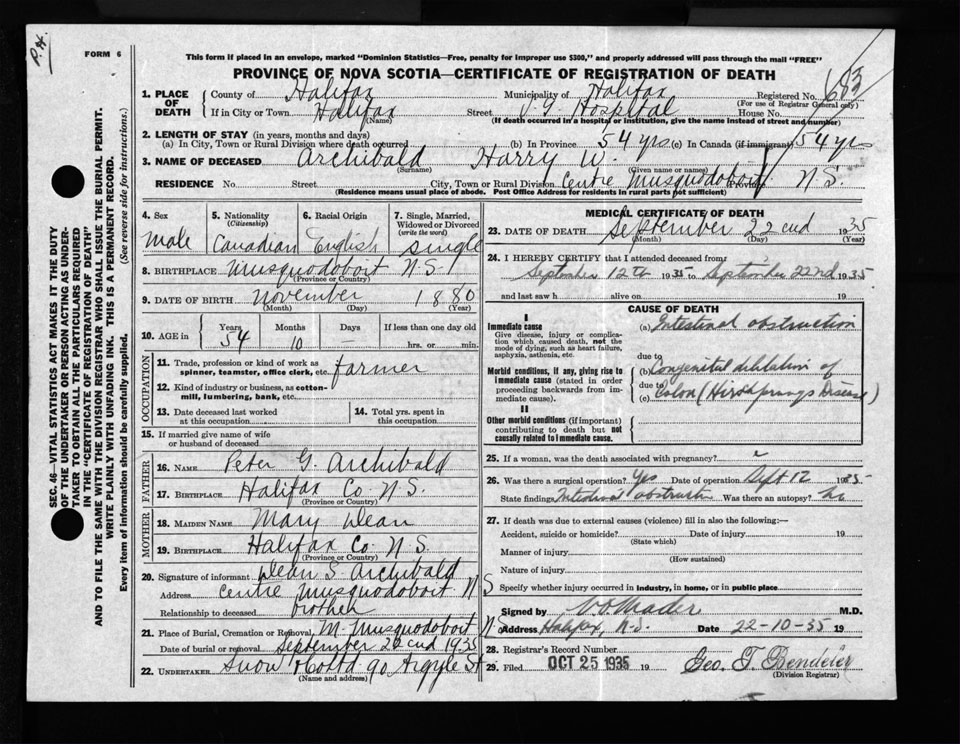 P.H.
FORM 6
This form if placed in an envelope, marked "Dominion Statistics—Free, penalty for improper use $300," and properly addressed will pass through the mail "FREE"
PROVINCE OF NOVA SCOTIA—CERTIFICATE OF REGISTRATION OF DEATH
SEC. 46—VITAL STATISTICS ACT MAKES IT THE DUTY
OF THE UNDERTAKER OR PERSON ACTING AS UNDER-
TAKER TO OBTAIN ALL THE PARTICULARS REQUIRED
IN THE "CERTIFICATE OF REGISTRATION OF DEATH"
AND TO FILE THE SAME WITH THE DIVISION REGISTRAR WHO SHALL ISSUE THE BURIAL PERMIT.
WRITE PLAINLY WITH UNFADING INK. THIS IS A PERMANENT RECORD.
Every item of information should be carefully supplied. (See reverse side for instructions.)
1. PLACE OF DEATH County of Halifax Municipality of Halifax Registered No. 683
(For use of Registrar General only)
If in City or Town Halifax (Name) Street V.G. Hospital House No.
(If death occurred in a hospital or institution, give the name instead of street and number)
2. LENGTH OF STAY (in years, months and days)
(a) In City, Town or Rural Division where death occurred (b) In Province 54 yrs (c) In Canada (if immigrant) 54 yrs
3. NAME OF DECEASED Archibald Harry W.
(Surname) (Given name or names)
RESIDENCE No. Street City, Town or Rural Division Centre Musquodoboit (Province) N S.
(Residence means usual place of abode. Post Office Address for residents in rural parts not sufficient)
4. Sex Male
5. Nationality (Citizenship) Canadian
6. Racial Origin English
7. Single, Married, Widowed or Divorced (write the word) Single
8. BIRTHPLACE Musquodoboit N S.
(Province or Country)
9. DATE OF BIRTH November 1880
(Month) (Day) (Year)
10. AGE in Years 54 Months 10 Days — If less than one day old hrs. or min.
OCCUPATION
11. Trade, profession or kind of work as spinner, teamster, office clerk, etc. farmer
12. Kind of industry or business, as cotton-mill, lumbering, bank, etc.
13. Date deceased last worked at this occupation
14. Total yrs. spent in this occupation
15. If married give name of wife or husband of deceased
FATHER
16. NAME Peter G. Archibald
17. BIRTHPLACE Halifax Co. N.S.
(Province or Country)
MOTHER
18. MAIDEN NAME Mary Dean
19. BIRTHPLACE Halifax Co. N.S.
(Province or Country)
20. Signature of informant Dean S. Archibald
Address Centre Musquodoboit N S
Relationship to deceased brother
21. Place of Burial, Cremation or Removal M. Musquodoboit N.S.
Date of burial or removal September 1935
22. UNDERTAKER Snow & Co Ltd 90 Argyle St
(Name and address)
MEDICAL CERTIFICATE OF DEATH
23. DATE OF DEATH September 22nd 1935
(Month) (Day) (Year)
24. I HEREBY CERTIFY that I attended deceased from:
September 12th 1935 to September 22nd 1935
and last saw h alive on 19
CAUSE OF DEATH
I
Immediate cause
Give disease, injury or complication which caused death, not the mode of dying, such as heart failure, asphyxia, asthenia, etc.
(a) Intestinal obstruction
due to
Morbid conditions, if any, giving rise to immediate cause (stated in order proceeding backwards from immediate cause).
(b) Congenital dilitation of
due to
(c) Colon (Hirshprungs Disease)
II
Other morbid conditions (if important) contributing to death but not causally related to immediate cause.
25. If a woman, was the death associated with pregnancy?
26. Was there a surgical operation? Yes Date of operation Sept 12 1935
State findings Intestinal obstruction Was there an autopsy? no
27. If death was due to external causes (violence) fill in also the following:—
Accident, suicide or homicide? Date of injury 19
(State which)
Manner of injury
(How sustained)
Nature of injury
Specify whether injury occurred in industry, in home, or in public place
Signed by V.O. Mader M.D.
Address Halifax, N.S. Date 22-10-35 19
28. Registrar's Record Number
29. Filed OCT 25 1935 19 Geo. T. Bendeler
(Division Registrar)